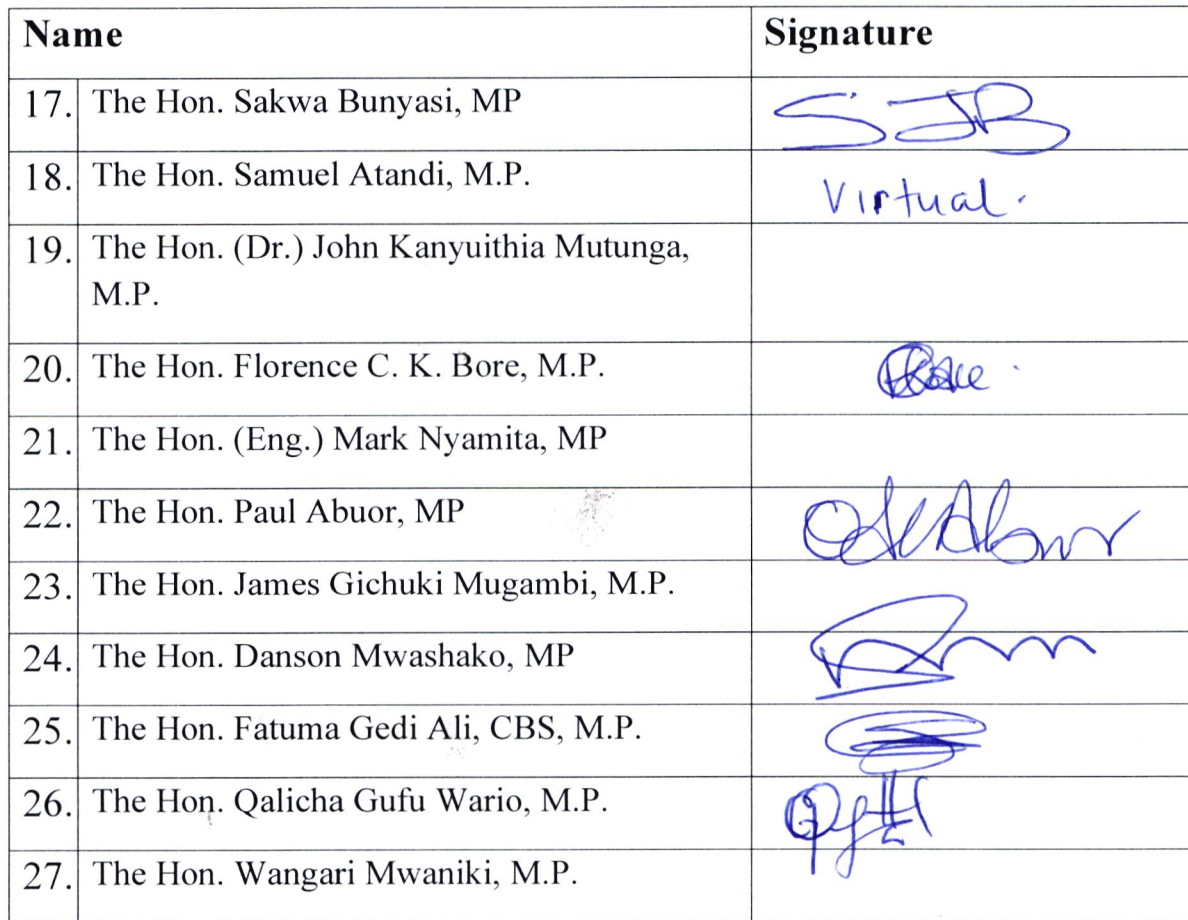 Name Signature
17. The Hon. Sakwa Bunyasi, MP SJB
18. The Hon. Samuel Atandi, M.P. Virtual.
19. The Hon. (Dr.) John Kanyuithia Mutunga,
M.P.
20. The Hon. Florence C. K. Bore, M.P.
21. The Hon. (Eng.) Mark Nyamita, MP
22. The Hon. Paul Abuor, MP
23. The Hon. James Gichuki Mugambi, M.P.
24. The Hon. Danson Mwashako, MP
25. The Hon. Fatuma Gedi Ali, CBS, M.P.
26. The Hon. Qalicha Gufu Wario, M.P.
27. The Hon. Wangari Mwaniki, M.P.